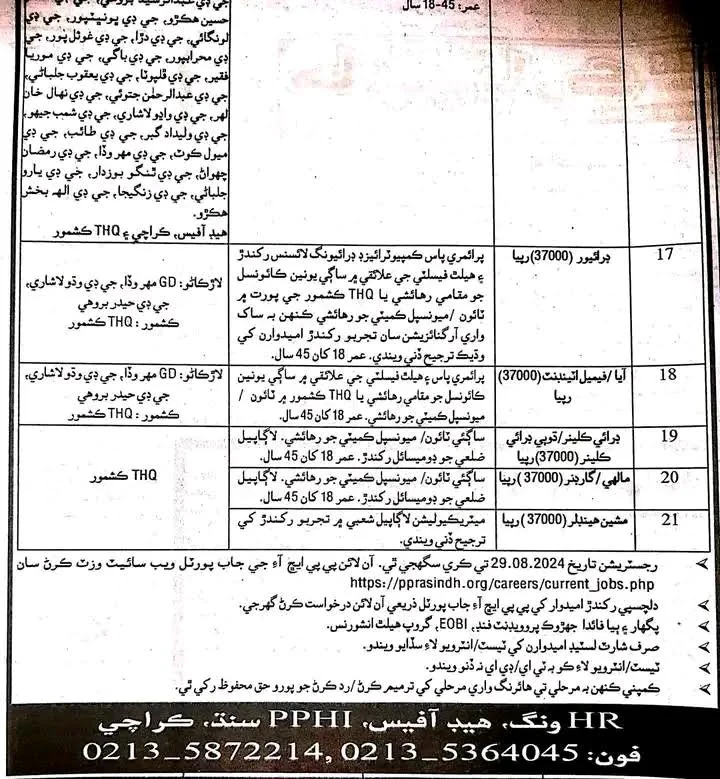 عمر: 45-18 سال
جي ڊي عبدالرشيد بروهي، جي ڊي
حسين هڪڙو، جي ڊي پونيٽپور، جي ڊي
لونگائي، جي ڊي دڙا، جي ڊي غوثل پور، جي
ڊي محرابپور، جي ڊي باگي، جي ڊي موريا
فقير، جي ڊي قلپوٽا، جي ڊي يعقوب جلباڻي،
جي ڊي عبدالرحمٰن جتوئي، جي ڊي نهال خان
لهر، جي ڊي واڍو لاشاري، جي ڊي شمب جيهو،
جي ڊي وليداد گبر، جي ڊي طائب، جي ڊي
ميول ڪوٽ، جي ڊي مهر وڏا، جي ڊي رمضان
چهواڻ، جي ڊي ٽنگو بوزدار، جي ڊي يارو
جلباڻي، جي ڊي زنگيجا، جي ڊي الهه بخش
هڪڙو.
هيڊ آفيس، ڪراچي ۽ THQ ڪشمور
17
ڊرائيور (37000) رپيا
پرائمري پاس ڪمپيوٽرائيزڊ ڊرائيونگ لائسنس رکندڙ
۽ هيلٿ فيسلٽي جي علائقي ۾ ساڳي يونين ڪائونسل
جو مقامي رهائشي يا THQ ڪشمور جي پورت ۾
ٽائون / ميونسپل ڪميٽي جو رهائشي ڪنهن به ساک
واري آرگنائزيشن سان تجربو رکندڙ اميدوارن کي
وڌيڪ ترجيح ڏني ويندي. عمر 18 کان 45 سال.
لاڙڪاڻو: GD مهر وڏا، جي ڊي وڏو لاشاري،
جي ڊي حيدر بروهي
ڪشمور: THQ ڪشمور
18
آيا / فيميل اٽينڊنٽ (37000)
رپيا
پرائمري پاس ۽ هيلٿ فيسلٽي جي علائقي ۾ ساڳي يونين
ڪائونسل جو مقامي رهائشي يا THQ ڪشمور ۾ ٽائون /
ميونسپل ڪميٽي جو رهائشي. عمر 18 کان 45 سال.
لاڙڪاڻو: GD مهر وڏا، جي ڊي وڏو لاشاري،
جي ڊي حيدر بروهي
ڪشمور: THQ ڪشمور
19
ڊرائي ڪلينر/ڌوٻي ڊرائي
ڪلينر (37000) رپيا
ساڳئي ٽائون/ ميونسپل ڪميٽي جو رهائشي. لاڳاپيل
ضلعي جو ڊوميسائل رکندڙ. عمر 18 کان 45 سال.
THQ ڪشمور
20
مالهي/گارڊنر (37000) رپيا
ساڳئي ٽائون/ ميونسپل ڪميٽي جو رهائشي. لاڳاپيل
ضلعي جو ڊوميسائل رکندڙ. عمر 18 کان 45 سال.
21
مشين هينڊلر (37000) رپيا
ميٽريڪيوليشن لاڳاپيل شعبي ۾ تجربو رکندڙ کي
ترجيح ڏني ويندي.
رجسٽريشن تاريخ 29.08.2024 تي ڪري سگهجي ٿي. آن لائن پي پي ايڇ آءِ جي جاب پورٽل ويب سائيٽ وزٽ ڪرڻ سان
https://pprasindh.org/careers/current_jobs.php
دلچسپي رکندڙ اميدوار کي پي پي ايڇ آءِ جاب پورٽل ذريعي آن لائن درخواست ڪرڻ گهرجي.
پگهار ۽ ٻيا فائدا جهڙوڪ پروويڊنٽ فنڊ، EOBI، گروپ هيلٿ انشورنس.
صرف شارٽ لسٽيڊ اميدوارن کي ٽيسٽ/انٽرويو لاءِ سڏايو ويندو.
ٽيسٽ/انٽرويو لاءِ ڪو به ٽي اي/ڊي اي نه ڏنو ويندو.
ڪمپني ڪنهن به مرحلي تي هائرنگ واري مرحلي کي ترميم ڪرڻ/رد ڪرڻ جو پورو حق محفوظ رکي ٿي.
HR ونگ، هيڊ آفيس، PPHI سنڌ، ڪراچي
فون: 0213_5872214, 0213_5364045